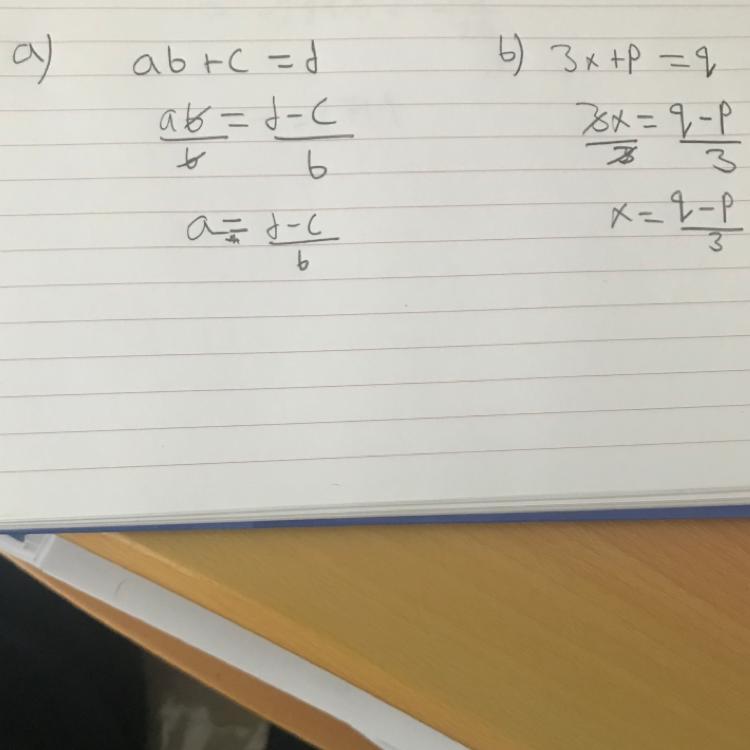 a) ab + c = d
ab = d - c
b b
a = d - c
b
b) 3x + p = q
3x = q - p
3 3
x = q - p
3